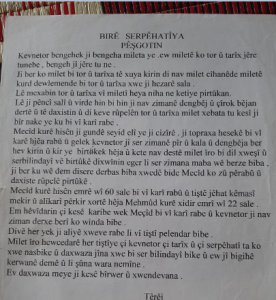 BIRÊ SERPÊHATÎYA
PÊŞGOTIN
Kevnetor bengehek ji bengeha mileta ye .ew miletê ko tor û tarîx jêre
tunebe , bengeh jî jêre tu ne .
Ji ber ko milet bi tor û tarîxa tê xuya kirin di nav milet cihanêde miletê
kurd dewlemende bi tor û tarîxa xwe ji bezarê sala .
Lê mexabin tor û tarîxa vî miletî heya niha ne ketiye pirtûkan.
Lê ji pêncî salî û virde hin bi hin ji nav zimanê dengbêj û çîrok bêjan
dertê û tê daxistin di di kevn rûpêlên tor û tarîxa milet xebata tu kesî ji
bîr nake ye ku bi vî karî rabe .
Mecîd kurê hisên ji gundê seyid elî ye ji cizîrê . ji topraxa hesekê bi vî
karê hêja rabû û gelek kevnetor ji ser zimanê pîr û kala û dengbêja ber
hev kirin û kir ye birtûkek hêja û kete nav destê milet îro bi dil xweşî û
serbilindayî vê birtûkê dixwînin eger li ser zimana maba wê berze biba .
ji ber ku wê dem disere derbas biba xwedê bide Mecîd ko zû pêrabû û
daxiste rûpelê pirtûkê .
Mecîd kurê hisên emrê wî 60 sale bi vî karî rabû û tiştê jêhat kêmasî
mekir û alîkarî pêrkir xortê hêja Mehmûd kurê xidir emrê wî 22 sale .
Em hêvîdarin çi kesê karibe wek Mecîd bi vî karî rabe û kevnetor ji nav
ziman derxe berî ko winda bibe .
Divê her yek ji alîyê xweve rabe li vî tiştî pelendar bibe .
Milet îro hewcedarê her tiştîye çi kevnetor çi tarîx û çi serpêhatî ta ko
xwe nasbike û daxwaza jîna xwe bi ser bilindayî bike û ew jî bigihê
kerwanê demê û li şûna wara nemîne .
Ev daxwaza meye ji kesê bîrwer û xwendevana .
Têrêj